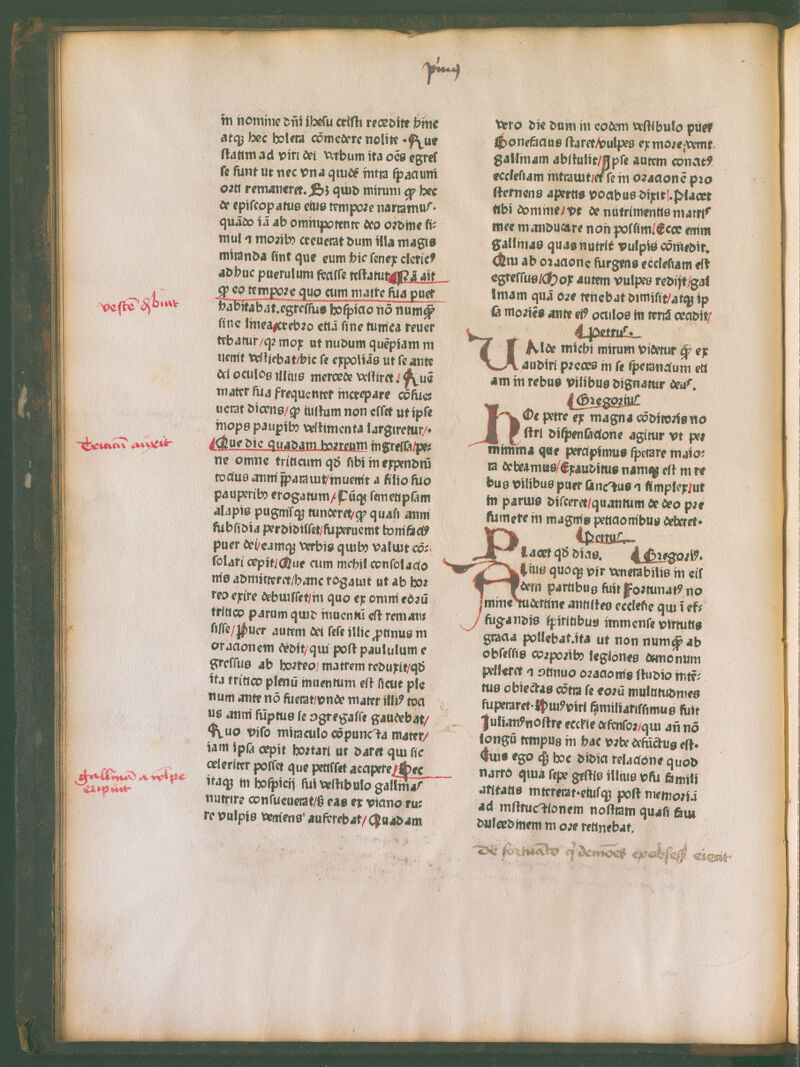 p͛imꝰ
in nomine dn̄i ihesu cristi recedite hinc
atqꝫ hec holera cōmedere nolite . Que
statim ad viri dei verbum ita oēs egres
se sunt ut nec vna quidē intra spacium
orti remaneret. Sꝫ quid mirum ꝙ hec
de episcopatus eius tempore narramus.
quādo iā ab omnipotente deo ordine si-
mul ⁊ moribꝫ creuerat dum illa magis
miranda sint que eum hic senex clericꝰ
adhuc puerulum fecisse testatur/ Nā ait
ꝙ eo tempore quo cum matre sua puer
habitabat.egressus hospicio nō numꝙ̄
sine linea,crebro etiā sine tunica reuer
tebatur/qꝛ mox ut nudum quēpiam in
uenit vestiebat/hic se expoliās ut se ante
dei oculos illius mercede vestiret/ Quē
mater sua frequenter increpare cōsues
uerat dicens/ꝙ iustum non esset ut ipse
inops pauꝑibꝫ vestimenta largiretur/.
Que die quadam horreum ingressa/pe-
ne omne triticum qd̄ sibi in expendiū
tocius anni p̄parauit/inuenit a filio suo
pauperibꝫ erogatum/ Cūqꝫ semetipsam
alapis pugnisqꝫ tunderet/ꝙ quasi anni
subsidia perdidisset/superuenit bonifaciꝰ
puer dei/eamqꝫ verbis quibꝫ valuit cō-
solari cepit/Que cum nichil consolacio
nis admitteret/hanc rogauit ut ab hor
reo exire debuisset/in quo ex omni eorū
tritico parum quid inuentū est reman
sisse/Puer autem dei sese illic ꝓtinus in
oracionem dedit/qui post paululum e
gressus ab horreo matrem reduxit/qd̄
ita tritico plenū inuentum est sicut ple
num ante nō fuerat/vnde mater illiꝰ toci
us anni sūptus se ↄgregasse gaudebat/
Quo viso miraculo cōpuncta mater/
iam ipsa cepit hortari ut daret qui sic
celeriter posset que petisset accipere/ Hec
itaqꝫ in hospicij sui vestibulo gallinas
nutrire consueuerat/sꝫ eas ex viano ru-
re vulpis veniens auferebat/ Quadam
vestē dꝫbuit
Tritum̄ auxit
gallinā a vulpe
eripuit
vero die dum in eodem vestibulo puer
Bonefacius staret/vulpes ex more venit.
gallinam abstulit/Ipse autem concitꝰ
ecclesiam intrauit/et se in oracionē pro
sternens apertis vocibus dixit/.Placet
tibi domine/vt de nutrimentis matris
mee manducare non possim/Ecce enim
gallinas quas nutrit vulpis cōmedit.
Qui ab oracione surgens ecclesiam est
egressus/Mox autem vulpes redijt/gal
linam quā ore tenebat dimisit/atqꝫ ip
sa moriēs ante eiꝰ oculos in terrā cecidit/
Petrus.
VAlde michi mirum videtur ꝙ ex
audiri preces in se sperancium eti
am in rebus vilibus dignatur deus.
Gregorius
HOc petre ex magna cōditoris no
stri dispensacione agitur vt per
minima que percipimus sperare maio-
ra debeamus/Exauditus namqꝫ est in re
bus vilibus puer sanctus ⁊ simplex/ut
in paruis disceret/quantum de deo pre
sumere in magnis peticionibus deberet.
Petrus
Placet qd̄ dicis. Gregoriꝰ.
Alius quoqꝫ vir venerabilis in eis
dem partibus fuit Fortunatꝰ no
mine tudertine antistes ecclesie qui ī ef-
fugandis spiritibus immense virtutis
gracia pollebat.ita ut non numꝙ̄ ab
obsessis corꝑoribꝫ legiones demonum
pelleret ⁊ ↄtinuo oracionis studio intē-
tus obiectas cōtra se eorū multitudines
superaret.Huiꝰviri familiarissimus fuit
Julianꝰnostre ecctie defensor/qui añ nō
longū tempus in hac vrbe defūctus est.
Cuius ego qꝫ hoc didici relacione quod
narro quia sepe gestis illius vsu famili
aritatis intererat.eiusqꝫ post memoriā
ad instructionem nostram quasi faui
dulcedinem in ore retinebat.
De fortunato qͥ demones ex obsess͛ eiecit